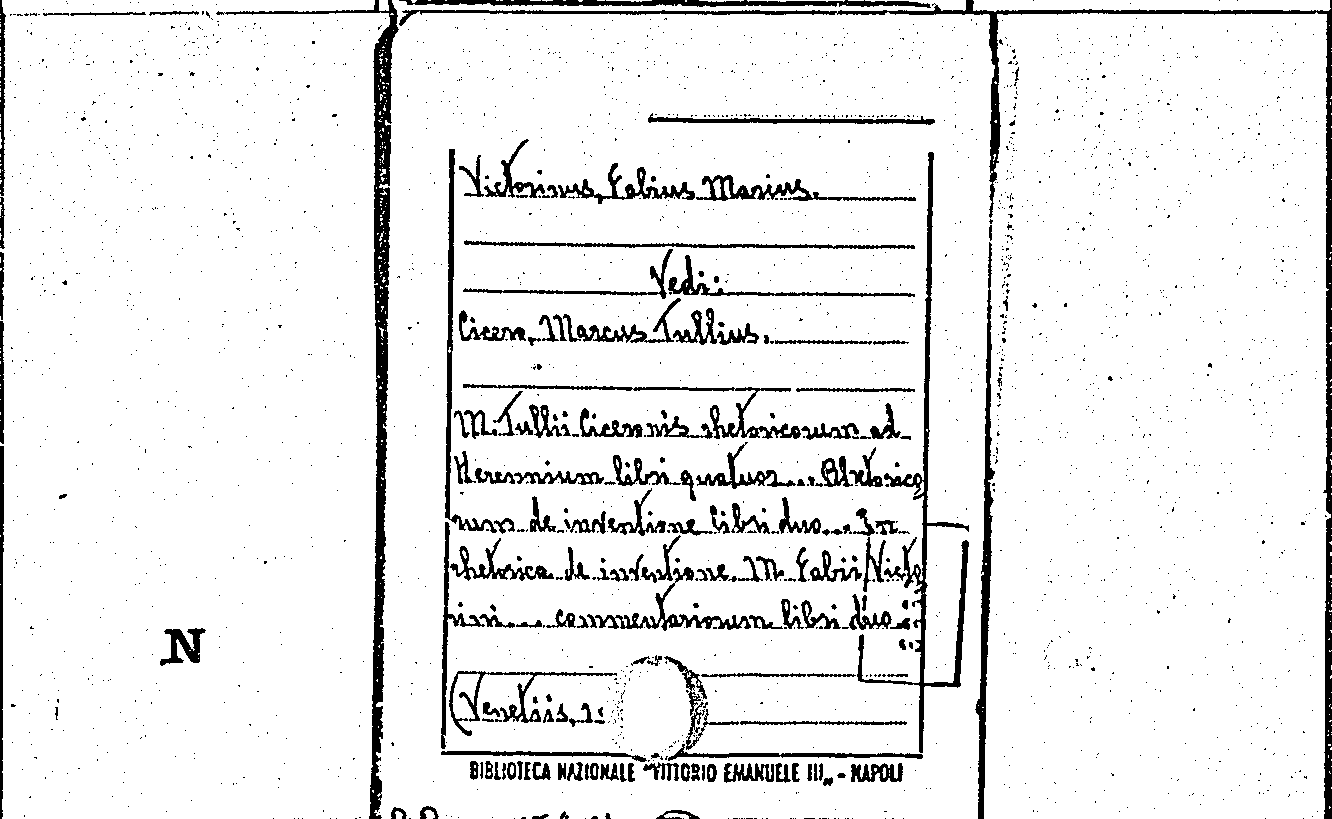 Victorinus, Fabius Marius.
Vedi:
Cicero, Marcus Tullius.
M. Tullii Ciceronis rhetoricorum ad
Herennium libri quatuor... Rhetorico
rum de inventione libri duo... In
rhetorica de inventione, M. Fabii Victo
rini... commentariorum libri duo...
N
(Venetiis, 1
BIBLIOTECA NAZIONALE "VITTORIO EMANUELE III„ - NAPOLI